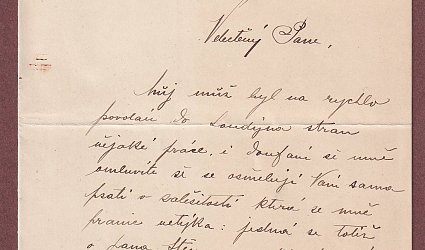 Velectěný Pane,
Můj muž byl na rychlo
povolán do Londýna stran
nějaké práce, i doufám si mně
omluvíte si se osměluji Vám sama
psáti o záležitosti která se mně
pranic netýká: jedná se totiž
o Jana